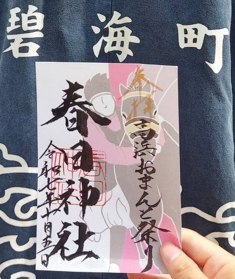 碧海町
奉拝
高浜おまんと祭り
春日神社
令和七年十月五日